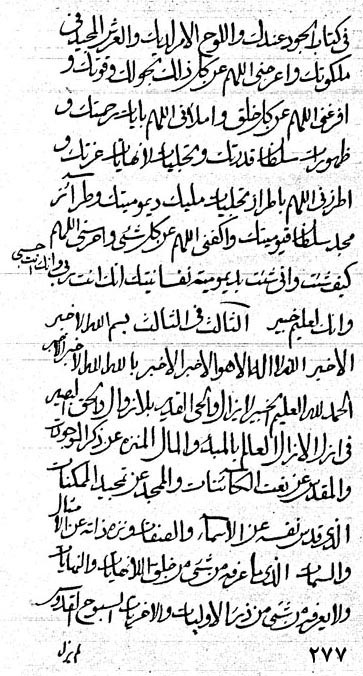 في كتاب الجود عندك واللوح الامر لديك والعز المجيد في
ملكوتك واعرجني اللهم عن كل ذلك بحولك وقوتك و
افرغني اللهم عن كل خلق واملأني اللهم بايات رحمتك و
ظهورات سلطان قدرتك وتجليات لانهايات عزتك و
اطرزني اللهم باطراز تجليات مليك ديموميتك وطرائز
مجد سلطان قيوميتك واكفني اللهم عن كل شئ واحرسني اللهم
كيف شئت واني شئت بديمومية نفسانيتك انك انت ربي وانك انت حسبي
وانك لعليم خبير الثالث في الثالث بسم الله الاخبر
الاخبر الله لا اله الا هو الاخبر الاخبر بالله الله الاخبر الاخبر
الحمد لله العليم الخبير الازال والحي القديم بلا زوال والحق البصير
في ازل الازال العالم بالمبدء والمال المنزه عن ذكر الموجودات
والمقدس عن نعت الكائنات والمجد عن تمجيد الممكنات
الذي قدس نفسه عن الاسماء والصفات ونزه ذاته عن الامثال
والسمات الذي ما عرفه من شئ من خلق اللانهايات والنهايات
ولا يعرفه من شئ من ذر الاوليات والاخريات السبوح القدوس
٢٧٧ لم يزل